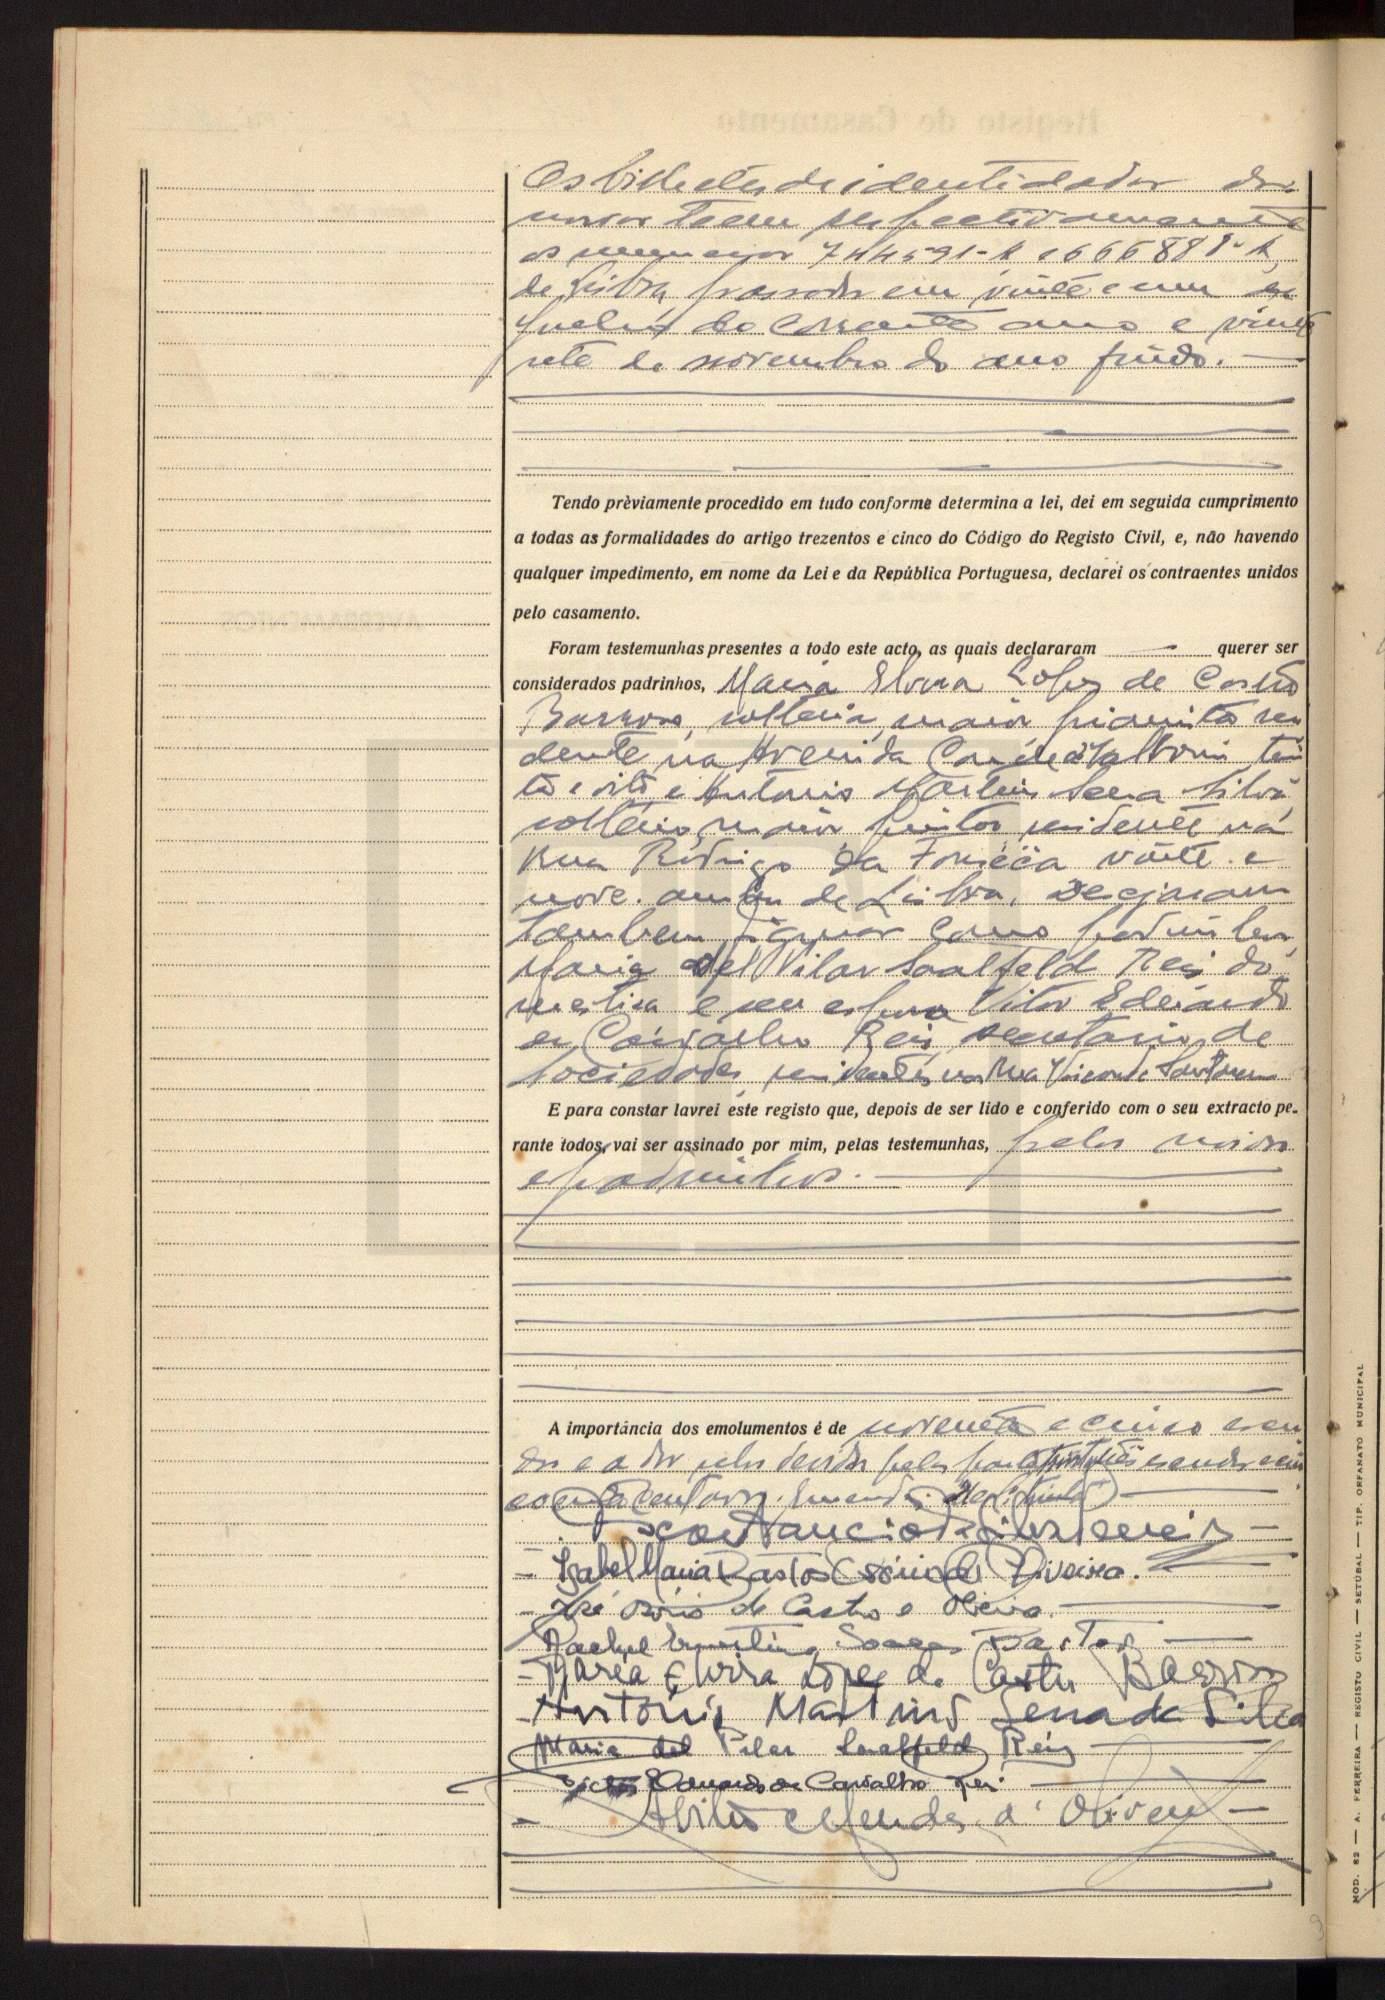 Os bilhetes de identidade dos
noivos teem respectivamente
os numeros 744591-A e 666888-A,
de Lisboa passados em vinte e um de
Junho do corrente ano e vinte
sete de novembro do ano findo.
Tendo prèviamente procedido em tudo conforme determina a lei, dei em seguida cumprimento
a todas as formalidades do artigo trezentos e cinco do Código do Registo Civil, e, não havendo
qualquer impedimento, em nome da Lei e da República Portuguesa, declarei os contraentes unidos
pelo casamento.
Foram testemunhas presentes a todo este acto, as quais declararam querer ser
considerados padrinhos, Maria Elvira Lopes de Castro
Barros, solteira, maior, pianista resi
dente na Avenida Conde Valbom trin
ta e oito e Antonio Martins Sena Silva,
solteiro, maior pintor, residente na
Rua Rodrigo da Fonseca vinte e
nove. ambos de Lisboa. Desejaram
tambem assinar como padrinhos
Maria del Pilar Saalfeld Reis do
mestica e seu esposo Vitor Eduardo
de Carvalho Reis, secretario de
Sociedades, residentes na Rua Visconde Santarem
E para constar lavrei êste registo que, depois de ser lido e conferido com o seu extracto pe-
rante todos, vai ser assinado por mim, pelas testemunhas, pelos noivos
e padrinhos.
A importância dos emolumentos é de noventa e cinco escu
dos e a dos selos devidos pelas partes escudos e cin
coenta centavos.
Isabel Maria Bastos Osório de Oliveira.
José Osório de Castro e Oliveira.
Rachel Ernestina Soares Bastos
Maria Elvira Lopes de Castro Barros
António Martins Sena da Silva
Maria del Pilar Saalfeld Reis
Victor Eduardo de Carvalho Reis
Mendes d'Oliveira
MOD. 82 — A. FERREIRA — REGISTO CIVIL — SETÚBAL — TIP. ORFANATO MUNICIPAL